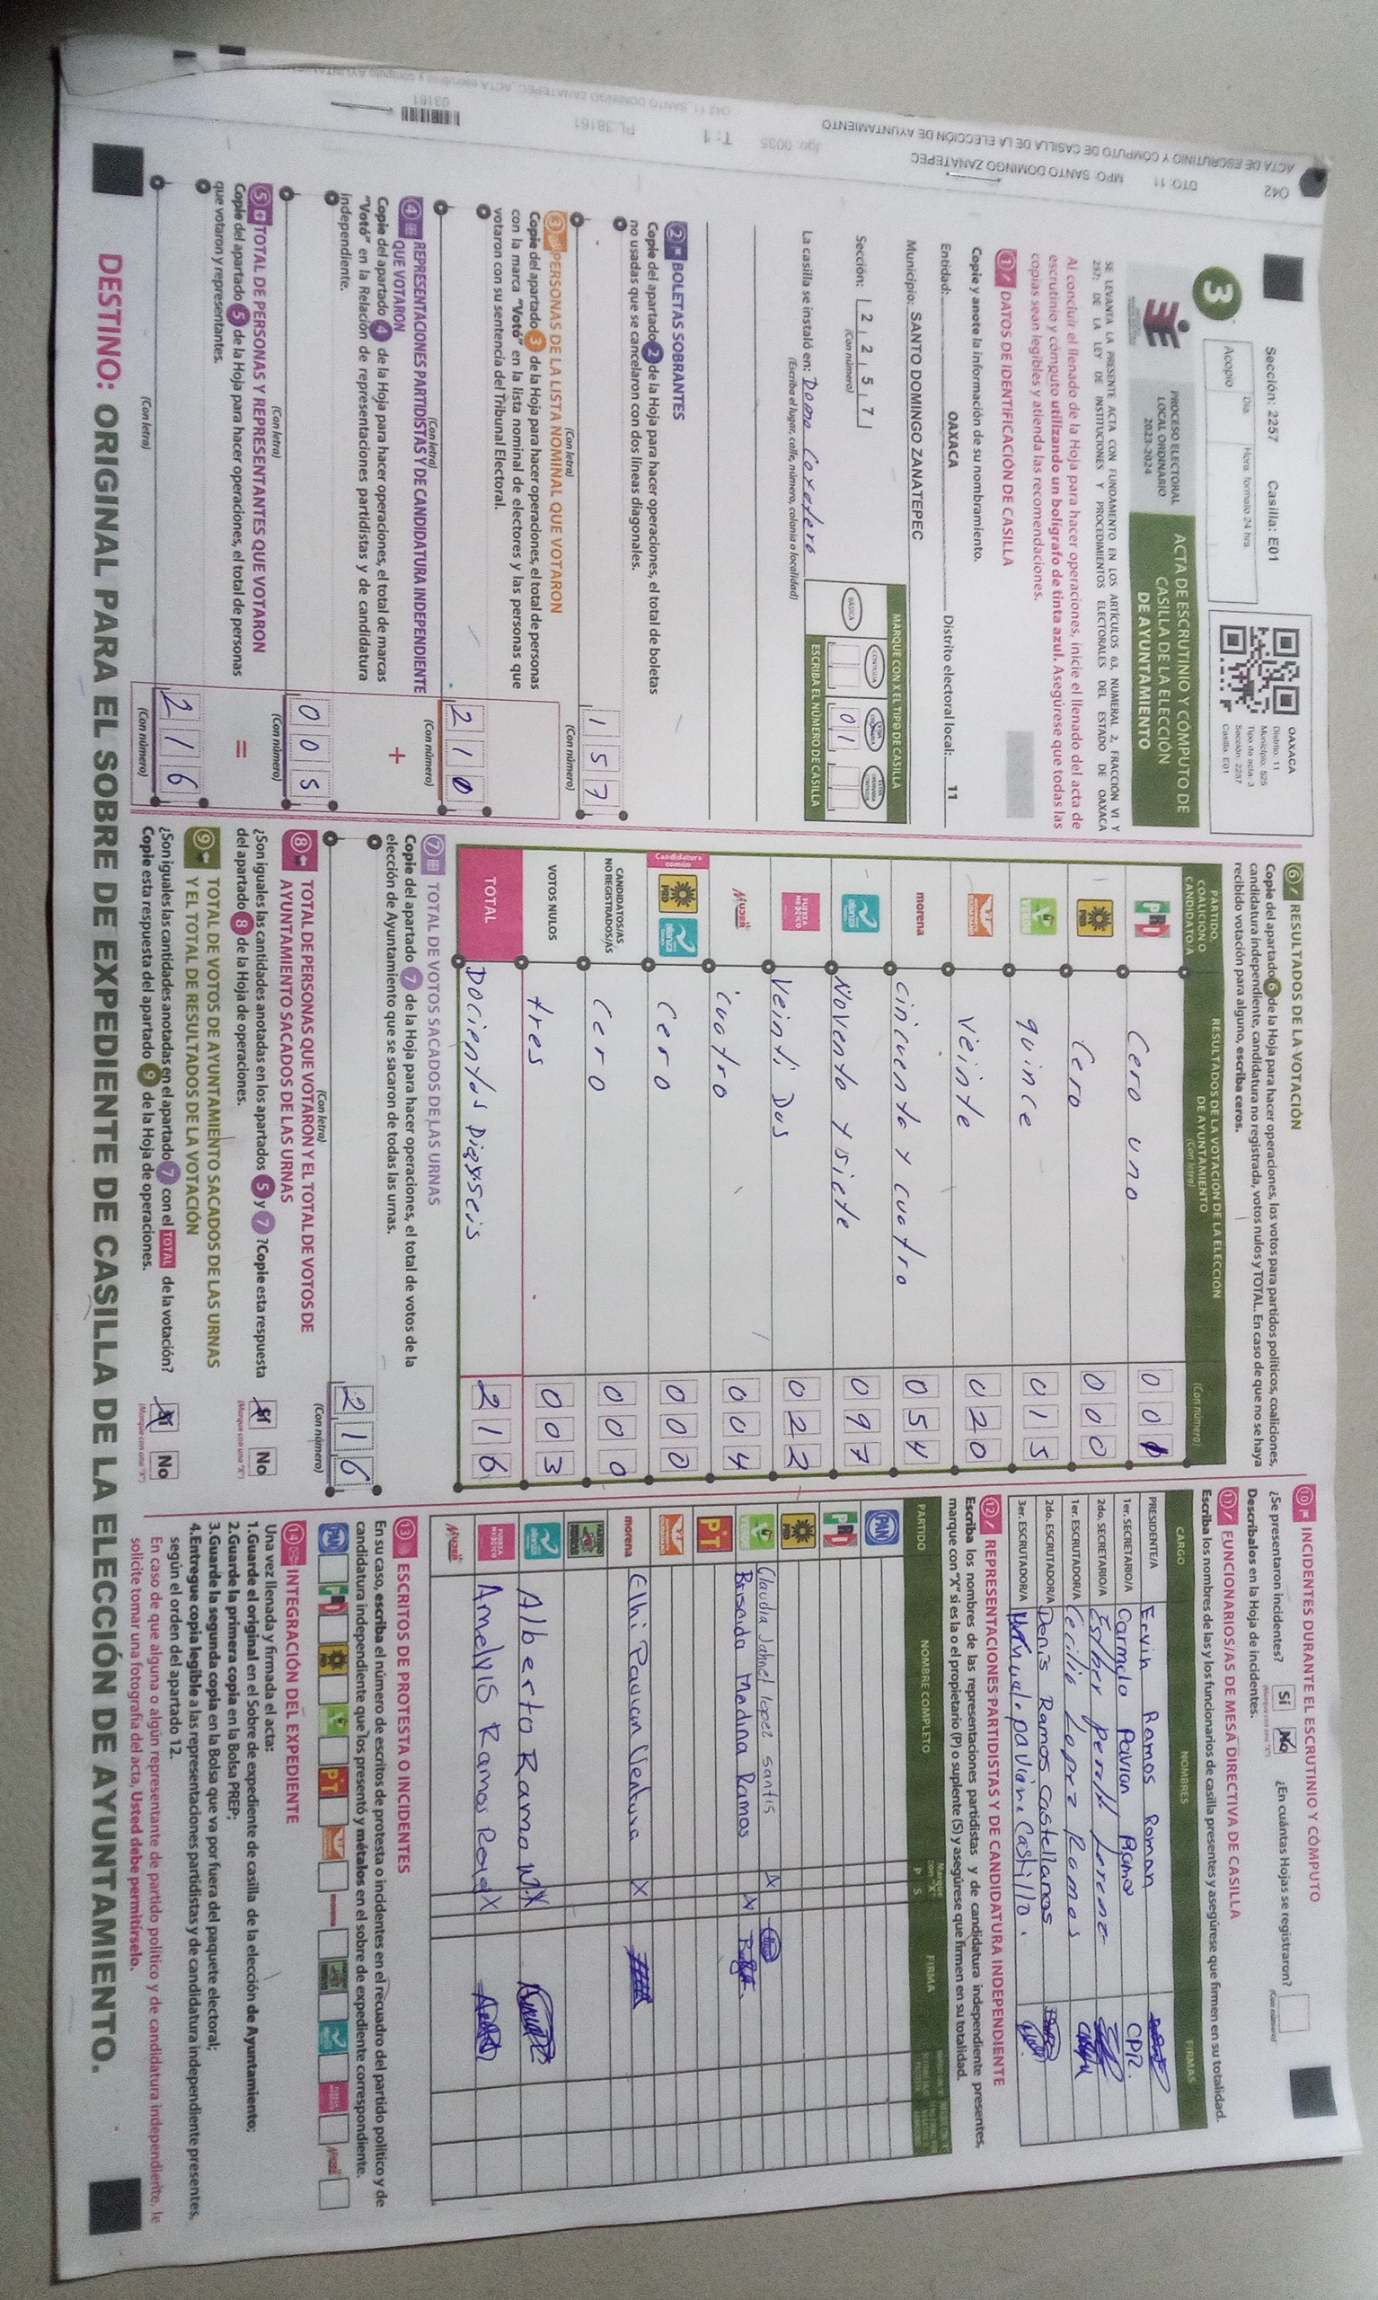 042 DTO: 11 MPO: SANTO DOMINGO ZANATEPEC
ACTA DE ESCRUTINIO Y CÓMPUTO DE CASILLA DE LA ELECCIÓN DE AYUNTAMIENTO
T: 1
PL.38161
03161
Sección: 2257 Casilla: E01
3
Acopio
Día
Hora: formato 24 hrs
OAXACA
Distrito: 11
Municipio: 525
Tipo de acta: 3
Sección: 2257
Casilla: E01
PROCESO ELECTORAL
LOCAL ORDINARIO
2023-2024
ACTA DE ESCRUTINIO Y CÓMPUTO DE
CASILLA DE LA ELECCIÓN
DE AYUNTAMIENTO
SE LEVANTA LA PRESENTE ACTA CON FUNDAMENTO EN LOS ARTÍCULOS 63, NUMERAL 2, FRACCIÓN VI Y
257; DE LA LEY DE INSTITUCIONES Y PROCEDIMIENTOS ELECTORALES DEL ESTADO DE OAXACA
Al concluir el llenado de la Hoja para hacer operaciones, inicie el llenado del acta de
escrutinio y cómputo utilizando un bolígrafo de tinta azul. Asegúrese que todas las
copias sean legibles y atienda las recomendaciones.
1 DATOS DE IDENTIFICACIÓN DE CASILLA
Copie y anote la información de su nombramiento.
Entidad: OAXACA Distrito electoral local: 11
Municipio: SANTO DOMINGO ZANATEPEC
Sección: 2 2 5 7
(Con número)
MARQUE CON X EL TIPO DE CASILLA
BÁSICA
CONTIGUA
0 1
ESCRIBA EL NÚMERO DE CASILLA
La casilla se instaló en: Domo
(Escriba el lugar, calle, número, colonia o localidad)
2 BOLETAS SOBRANTES
Copie del apartado 2 de la Hoja para hacer operaciones, el total de boletas
no usadas que se cancelaron con dos líneas diagonales.
1 5 7
(Con letra) (Con número)
3 PERSONAS DE LA LISTA NOMINAL QUE VOTARON
Copie del apartado 3 de la Hoja para hacer operaciones, el total de personas
con la marca "Votó" en la lista nominal de electores y las personas que
votaron con su sentencia del Tribunal Electoral.
2 1 0
(Con letra) (Con número)
4 REPRESENTACIONES PARTIDISTAS Y DE CANDIDATURA INDEPENDIENTE
QUE VOTARON
+
Copie del apartado 4 de la Hoja para hacer operaciones, el total de marcas
"Votó" en la Relación de representaciones partidistas y de candidatura
independiente.
0 0 5
(Con letra) (Con número)
5 TOTAL DE PERSONAS Y REPRESENTANTES QUE VOTARON
=
Copie del apartado 5 de la Hoja para hacer operaciones, el total de personas
que votaron y representantes.
2 1 6
(Con letra) (Con número)
6 RESULTADOS DE LA VOTACIÓN
Copie del apartado 6 de la Hoja para hacer operaciones, los votos para partidos políticos, coaliciones,
candidatura independiente, candidatura no registrada, votos nulos y TOTAL. En caso de que no se haya
recibido votación para alguno, escriba ceros.
PARTIDO,
COALICIÓN O
CANDIDATO/A
RESULTADOS DE LA VOTACIÓN DE LA ELECCIÓN
DE AYUNTAMIENTO
(Con letra) (Con número)
PRI Cero uno 0 0 1
PRD Cero 0 0 0
VERDE quince 0 1 5
veinte 0 2 0
morena cincuenta y cuatro 0 5 4
alianza Noventa y siete 0 9 7
FUERZA MÉXICO Veinti Dos 0 2 2
MUJER cuatro 0 0 4
Candidatura común
PRD alianza Cero 0 0 0
CANDIDATOS/AS
NO REGISTRADOS/AS Cero 0 0 0
VOTOS NULOS tres 0 0 3
TOTAL Docientos Diesyseis 2 1 6
7 TOTAL DE VOTOS SACADOS DE LAS URNAS
Copie del apartado 7 de la Hoja para hacer operaciones, el total de votos de la
elección de Ayuntamiento que se sacaron de todas las urnas.
2 1 6
(Con letra) (Con número)
8 TOTAL DE PERSONAS QUE VOTARON Y EL TOTAL DE VOTOS DE
AYUNTAMIENTO SACADOS DE LAS URNAS
¿Son iguales las cantidades anotadas en los apartados 5 y 7 ? Copie esta respuesta
del apartado 8 de la Hoja de operaciones.
Sí No
(Marque con una "X")
9 TOTAL DE VOTOS DE AYUNTAMIENTO SACADOS DE LAS URNAS
Y EL TOTAL DE RESULTADOS DE LA VOTACIÓN
¿Son iguales las cantidades anotadas en el apartado 7 con el TOTAL de la votación?
Copie esta respuesta del apartado 9 de la Hoja de operaciones.
Sí No
(Marque con una "X")
10 INCIDENTES DURANTE EL ESCRUTINIO Y CÓMPUTO
¿Se presentaron incidentes? Sí No ¿En cuántas Hojas se registraron?
(Marque con una "X") (Con número)
Descríbalos en la Hoja de incidentes.
11 FUNCIONARIOS/AS DE MESA DIRECTIVA DE CASILLA
Escriba los nombres de las y los funcionarios de casilla presentes y asegúrese que firmen en su totalidad.
CARGO NOMBRES FIRMAS
PRESIDENTE/A Ervin Ramos Roman
1er. SECRETARIO/A Carmelo Pavian CPR.
2do. SECRETARIO/A Esther
1er. ESCRUTADOR/A Cecilia Lopez Ramos
2do. ESCRUTADOR/A Denis Ramos Castellanos
3er. ESCRUTADOR/A Castillo.
12 REPRESENTACIONES PARTIDISTAS Y DE CANDIDATURA INDEPENDIENTE
Escriba los nombres de las representaciones partidistas y de candidatura independiente presentes,
marque con "X" si es la o el propietario (P) o suplente (S) y asegúrese que firmen en su totalidad.
PARTIDO NOMBRE COMPLETO Marque con "X" P S FIRMA
PAN
PRI
PRD Claudia Jahnel lopez santis X
VERDE Brisaida Medina Ramos X
PT
morena Elhi Pavian Ventura X
alianza Alberto Ramos X
FUERZA MÉXICO Amelyis Ramos X
MUJER
13 ESCRITOS DE PROTESTA O INCIDENTES
En su caso, escriba el número de escritos de protesta o incidentes en el recuadro del partido político y de
candidatura independiente que los presentó y métalos en el sobre de expediente correspondiente.
PAN PRI PRD VERDE PT morena
14 INTEGRACIÓN DEL EXPEDIENTE
Una vez llenada y firmada el acta:
1.Guarde el original en el Sobre de expediente de casilla de la elección de Ayuntamiento;
2.Guarde la primera copia en la Bolsa PREP;
3.Guarde la segunda copia en la Bolsa que va por fuera del paquete electoral;
4.Entregue copia legible a las representaciones partidistas y de candidatura independiente presentes,
según el orden del apartado 12.
En caso de que alguna o algún representante de partido político y de candidatura independiente, le
solicite tomar una fotografía del acta, Usted debe permitírselo.
DESTINO: ORIGINAL PARA EL SOBRE DE EXPEDIENTE DE CASILLA DE LA ELECCIÓN DE AYUNTAMIENTO.